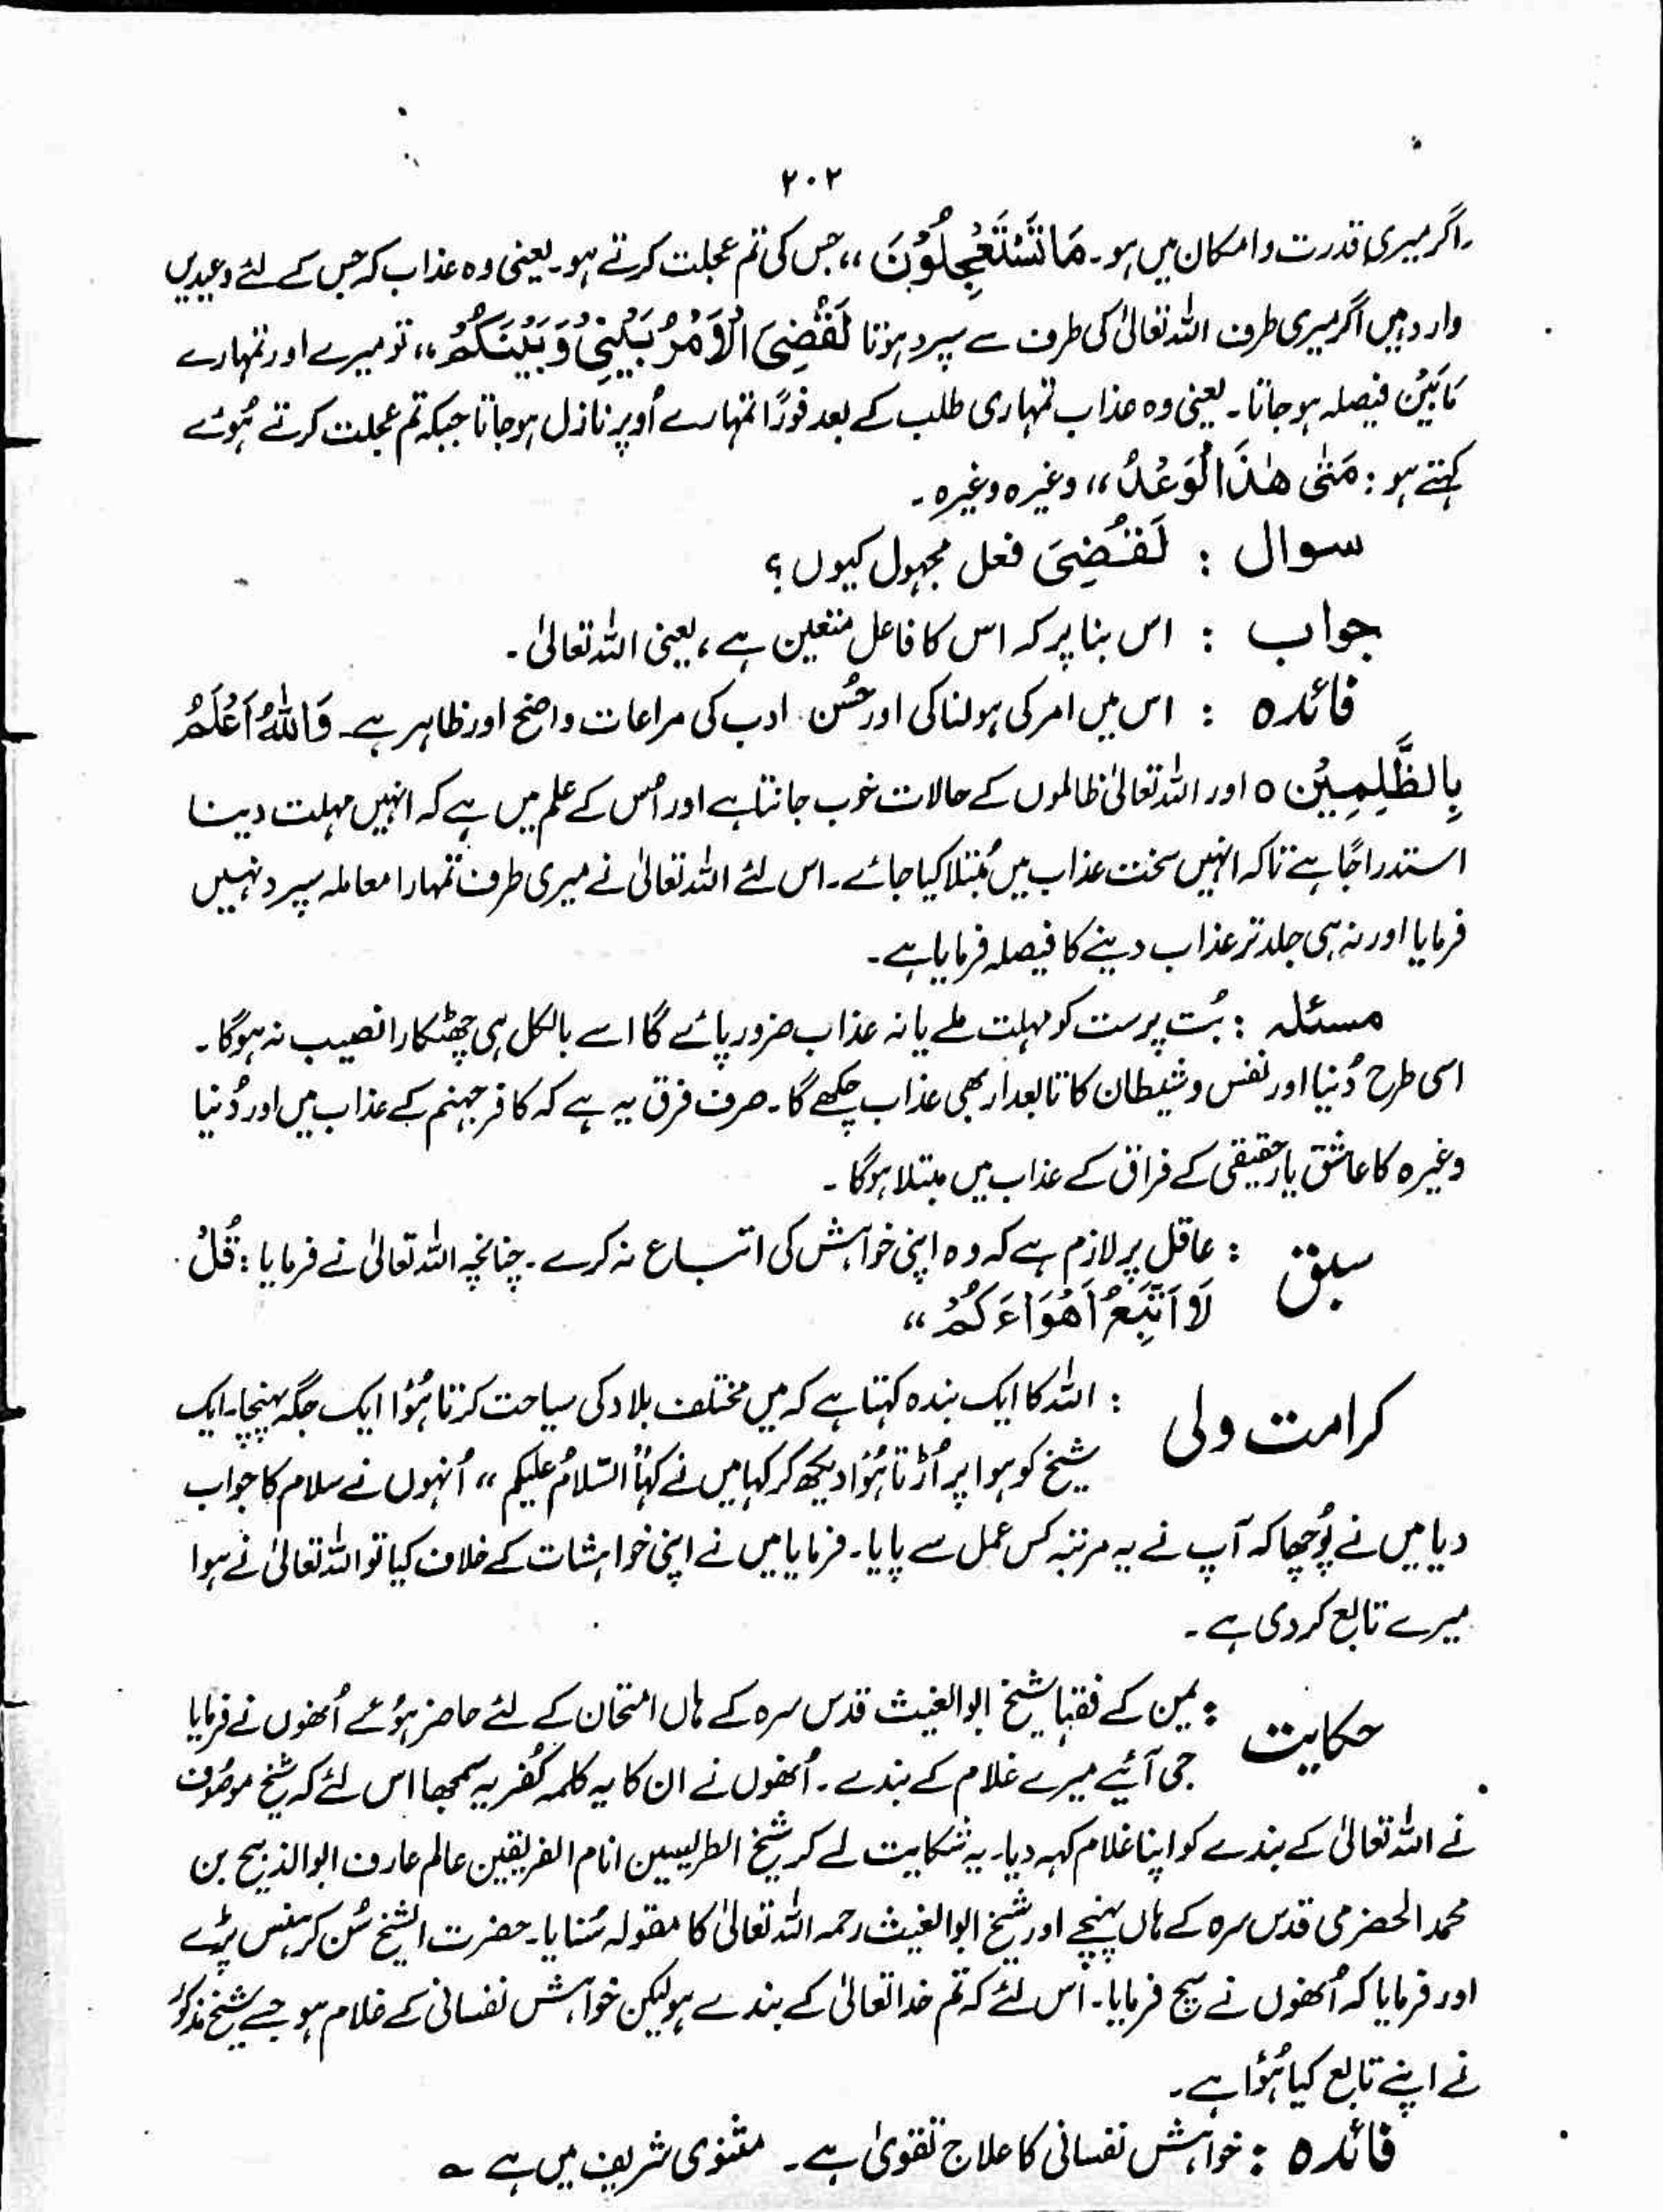 ۲۰۲
اگر میری قدرت و امکان میں ہو۔ مَا تَسْتَعْجِلُوْنَ ،، جس کی تم عجلت کرتے ہو۔ یعنی وہ عذاب کہ جس کے لئے وعیدیں
وارد ہیں اگر میری طرف اللہ تعالیٰ کی طرف سے سپرد ہوتا لَقُضِیَ الْاَمْرُ بَیْنِیْ وَبَیْنَکُمْ ،، تو میرے اور تمہارے
مَابَیْن فیصلہ ہو جاتا۔ یعنی وہ عذاب تمہاری طلب کے بعد فورًا تمہارے اُوپر نازل ہو جاتا جبکہ تم عجلت کرتے ہُوئے
کہتے ہو : مَتٰی ھٰذَا الْوَعْدُ ،، وغیرہ وغیرہ۔
سوال : لَقُضِیَ فعل مجہول کیوں ؟
جواب : اس بنا پر کہ اس کا فاعل متعین ہے ، یعنی اللہ تعالیٰ۔
فائدہ : اس میں امر کی ہولناکی اور حُسن ادب کی مراعات واضح اور ظاہر ہے۔ وَاللّٰہُ اَعْلَمُ
بِالظّٰلِمِیْن ٥ اور اللہ تعالیٰ ظالموں کے حالات خوب جانتا ہے اور اُس کے علم میں ہے کہ انہیں مہلت دینا
استدراجًا ہے تاکہ انہیں سخت عذاب میں مُبتلا کیا جائے۔ اس لئے اللہ تعالیٰ نے میری طرف تمہارا معاملہ سپرد نہیں
فرمایا اور نہ ہی جلد تر عذاب دینے کا فیصلہ فرمایا ہے۔
مسئلہ : بُت پرست کو مہلت ملے یا نہ عذاب ضرور پائے گا اسے بالکل ہی چھٹکارا نصیب نہ ہوگا۔
اسی طرح دُنیا اور نفس و شیطان کا تابعدار بھی عذاب چکھے گا۔ صرف فرق یہ ہے کہ کافر جہنم کے عذاب میں اور دُنیا
وغیرہ کا عاشق یار حقیقی کے فراق کے عذاب میں مبتلا ہوگا۔
سبق : عاقل پر لازم ہے کہ وہ اپنی خواہش کی اتباع نہ کرے۔ چنانچہ اللہ تعالیٰ نے فرمایا : قُلْ
لَا اَتَّبِعُ اَھْوَاءَکُمْ ،،
کرامت ولی : اللہ کا ایک بندہ کہتا ہے کہ میں مختلف بلاد کی سیاحت کرتا ہُوا ایک جگہ پہنچا۔ ایک
شیخ کو ہوا پر اُڑتا ہُوا دیکھ کر کہا میں نے کہا،، السّلامُ علیکم ،، اُنہوں نے سلام کا جواب
دیا میں نے پُوچھا کہ آپ نے یہ مرتبہ کس عمل سے پایا۔ فرمایا میں نے اپنی خواہشات کے خلاف کیا تو اللہ تعالیٰ نے ہوا
میرے تابع کر دی ہے۔
حکایت : یمن کے فقہا شیخ ابوالغیث قدس سرہ کے ہاں امتحان کے لئے حاضر ہُوئے اُنھوں نے فرمایا
جی آئیے میرے غلام کے بندے۔ اُنھوں نے ان کا یہ کلمہ کُفریہ سمجھا اس لئے کہ شیخ موصُوف
نے اللہ تعالیٰ کے بندے کو اپنا غلام کہہ دیا۔ یہ شکایت لے کر شیخ الطریسین انام الفریقین عالم عارف ابوالذبیح بن
محمد الحضرمی قدس سرہ کے ہاں پہنچے اور شیخ ابوالغیث رحمہ اللہ تعالیٰ کا مقولہ سُنایا۔ حضرت الشیخ سُن کر ہنس پڑے
اور فرمایا کہ اُنھوں نے سچ فرمایا۔ اس لئے کہ تم خدا تعالیٰ کے بندے ہو لیکن خواہش نفسانی کے غلام ہو جسے شیخ مذکور
نے اپنے تابع کیا ہُوا ہے۔
فائدہ : خواہش نفسانی کا علاج تقویٰ ہے۔ مثنوی شریف میں ہے ؎